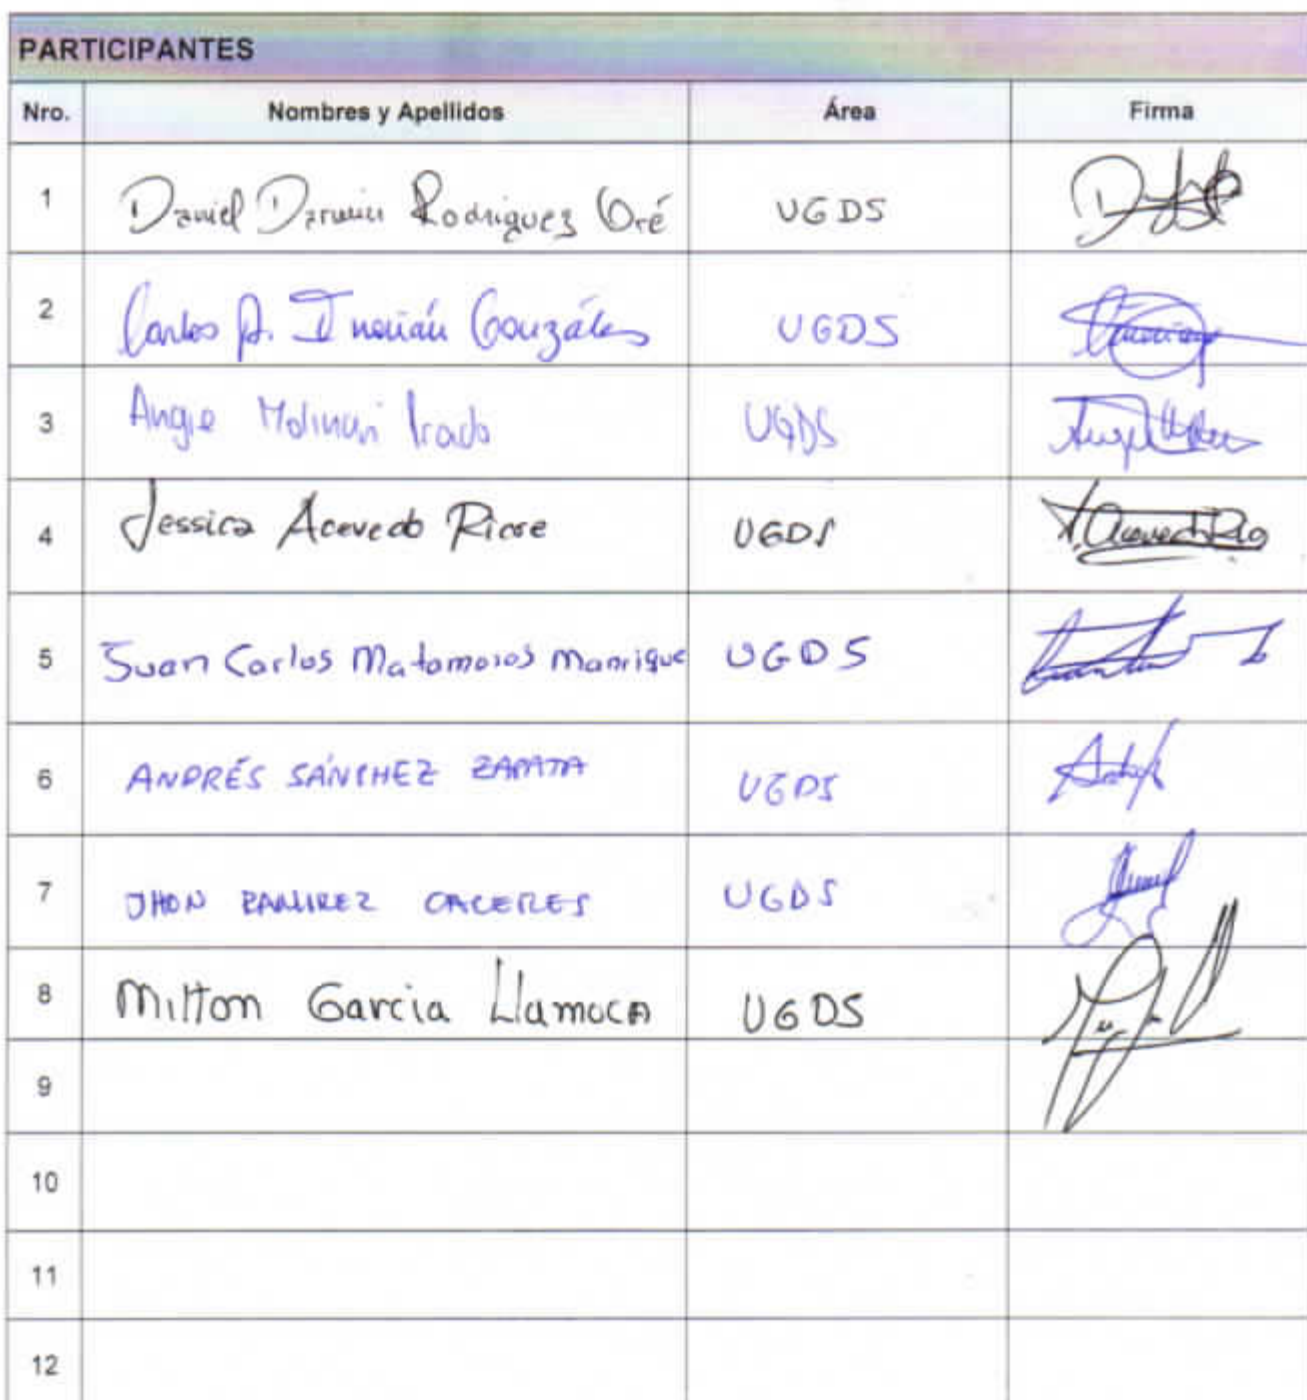 PARTICIPANTES
Nro. Nombres y Apellidos Área Firma
1 Daniel Darwin Rodriguez Oré UGDS
2 Carlos A. González UGDS
3 Angie Molinari UGDS
4 Jessica Acevedo UGDS
5 Juan Carlos Matamoros Manrique UGDS
6 ANDRÉS SÁNCHEZ ZAPATA UGDS
7 JHON RAMIREZ CACERES UGDS
8 Milton Garcia Llamoca UGDS
9
10
11
12